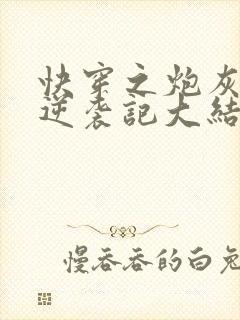 快穿之炮灰
逆袭記大結
慢吞吞的白兔